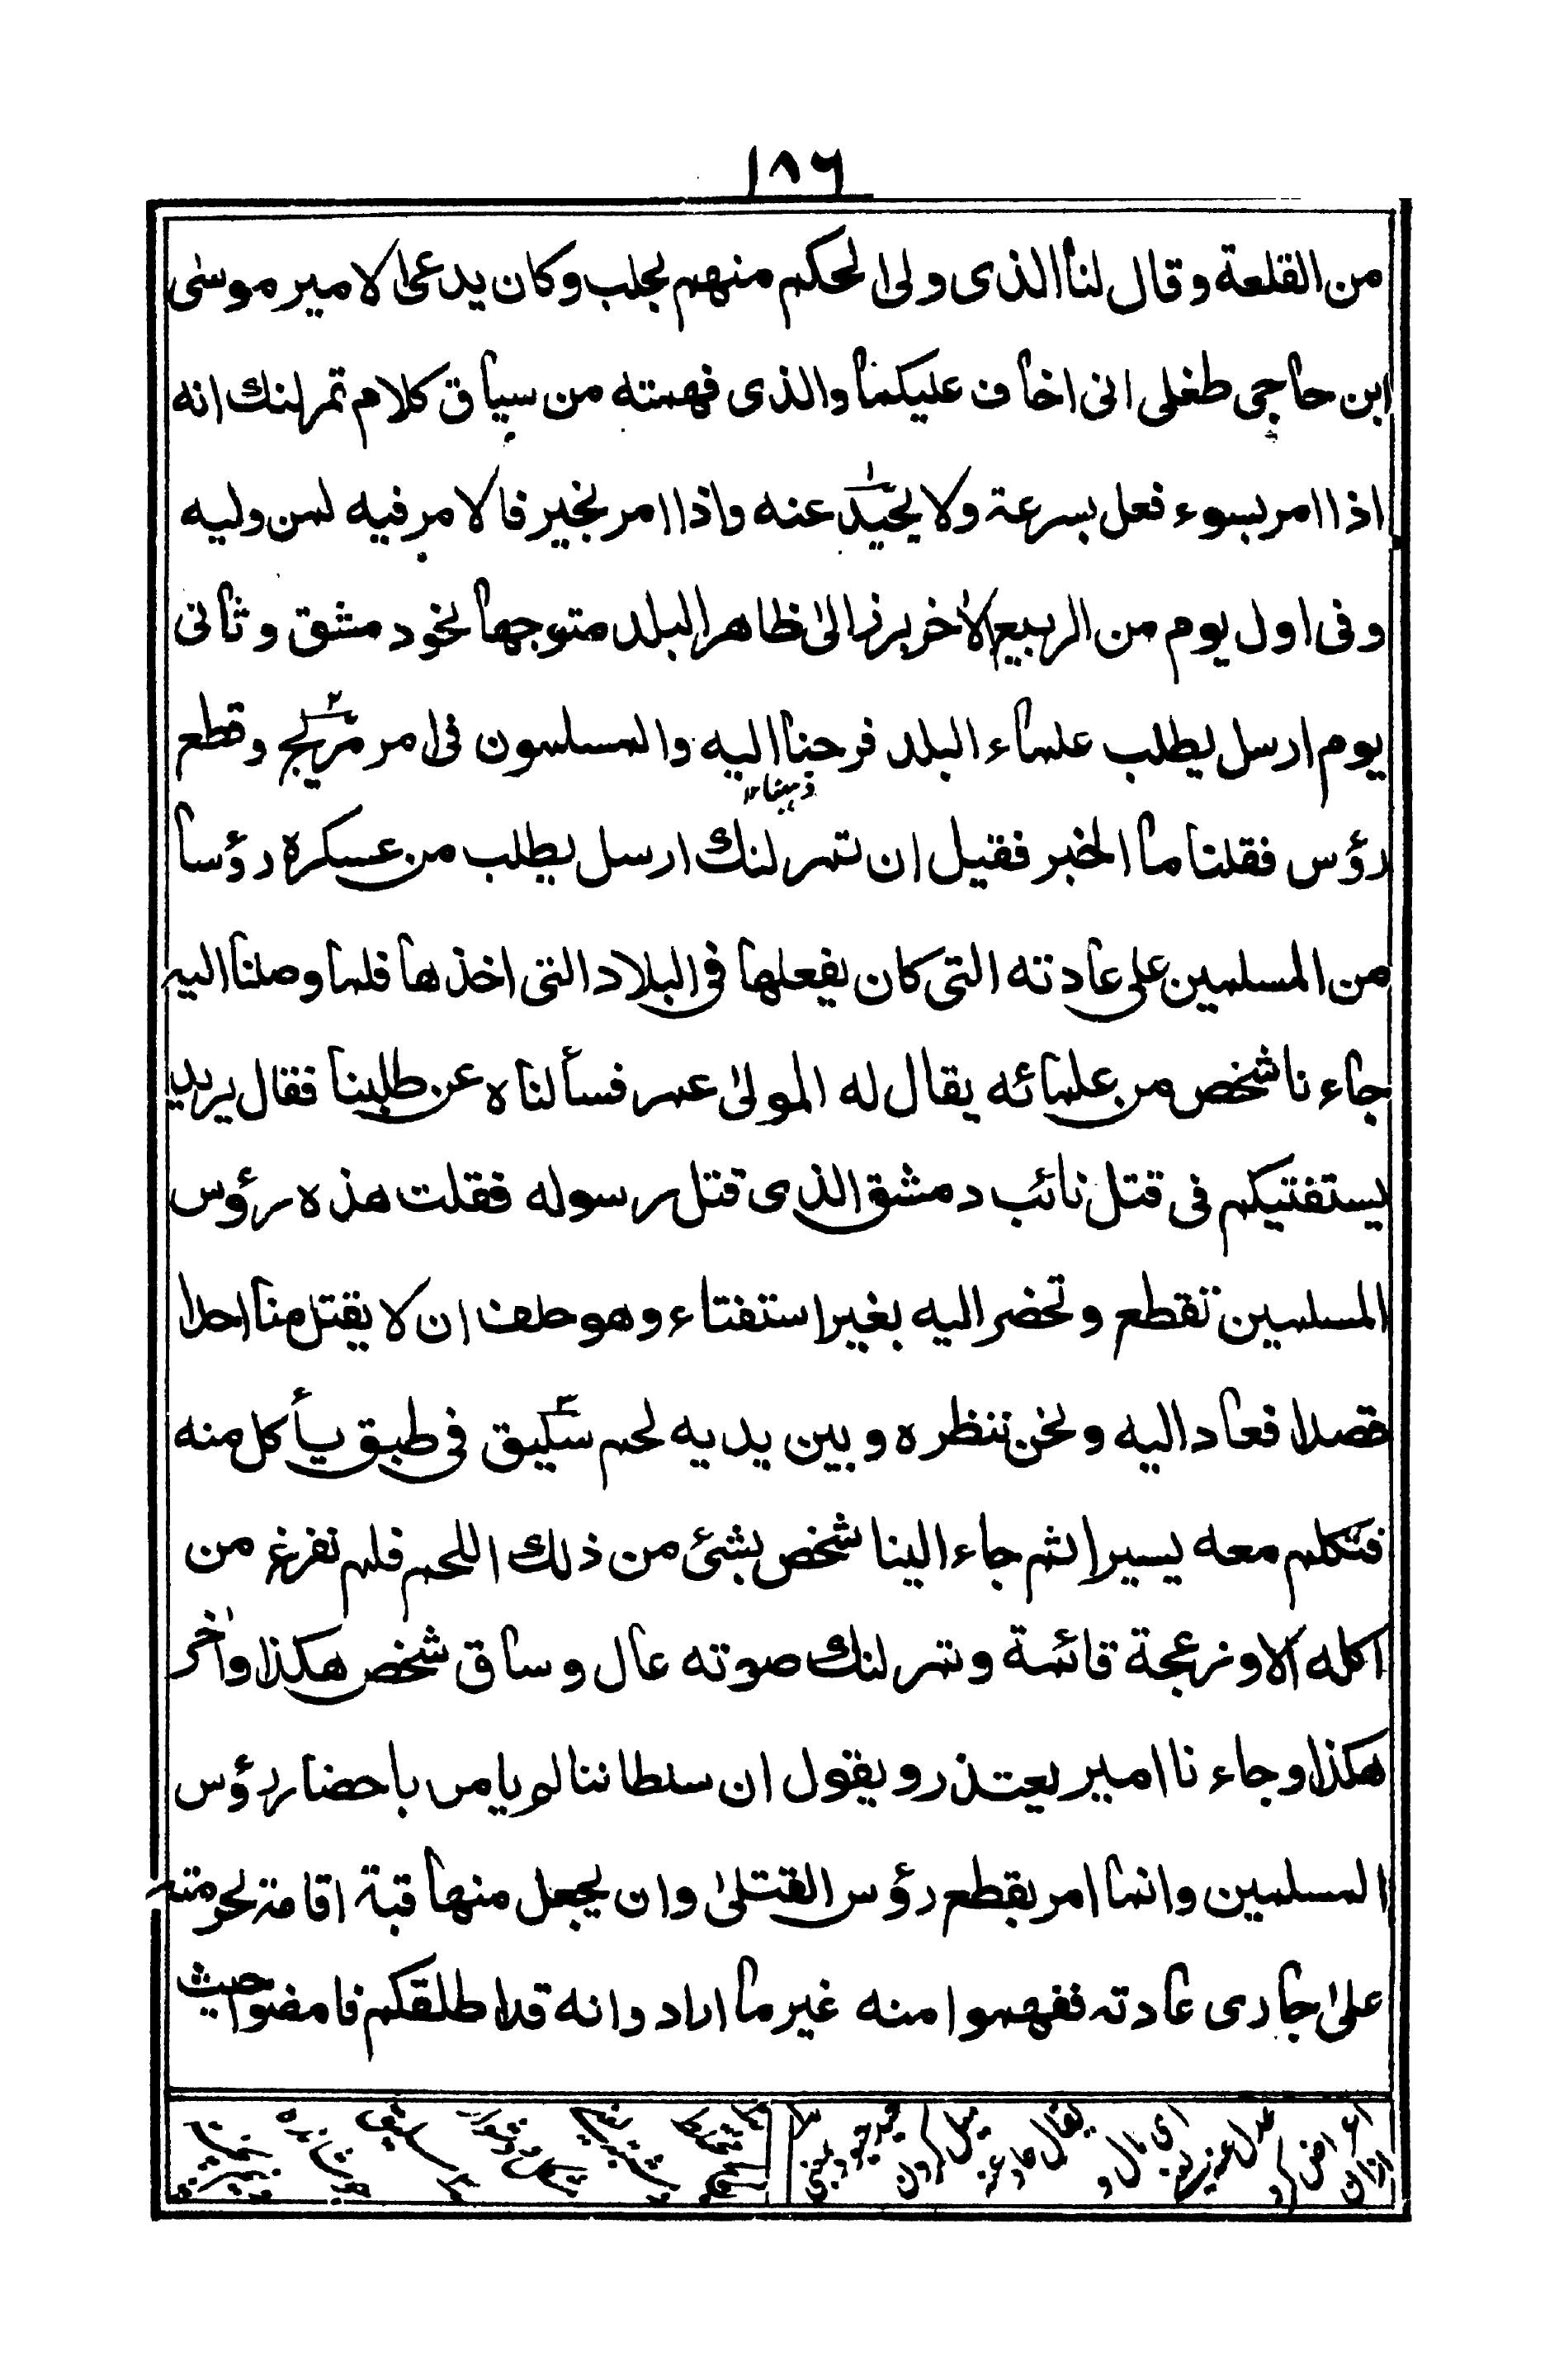 ١٨٦
من القلعة وقال لنا الذى ولى الحكم منهم بحلب وكان يدعى الامير موسى
ابن حاجى طغلى انى اخاف عليكما والذى فهمته من سياق كلام تمرلنك انه
اذا امر بسوء فعل بسرعة ولا يحيد عنه واذا امر بخير فالامر فيه لمن وليه
وفى اول يوم من الربيع الآخر برز الى ظاهر البلد متوجها نحو دمشق وثانى
يوم ارسل يطلب علماء البلد فرحنا اليه والمسلمون فى امر مريج وقطع
ذهبنا ١٢
رؤس فقلنا ما الخبر فقيل ان تمرلنك ارسل يطلب من عسكره رؤسا
من المسلمين على عادته التى كان يفعلها فى البلاد التى اخذها فلما وصلنا اليه
جاءنا شخص من علمائه يقال له المولى عمر فسألناه عن طلبنا فقال يريد
يستفتيكم فى قتل نائب دمشق الذى قتل رسوله فقلت هذه رؤس
المسلمين تقطع وتحضر اليه بغير استفتاء وهو حلف ان لا يقتل منا احدا
قصدا فعاد اليه ونحن ننظره وبين يديه لحم سليق فى طبق يأكل منه
فتكلم معه يسيرا ثم جاء الينا شخص بشئ من ذلك اللحم فلم نفرغ من
اكله الا وزعجة قائمة وتمرلنك صوته عال وساق شخص هكذا وآخر
هكذا وجاءنا امير يعتذر ويقول ان سلطاننا لم يامر باحضار رؤس
المسلمين وانما امر بقطع رؤس القتلى وان يجعل منها قبة اقامة لحرمته
على جارى عادته ففهموا منه غير ما اراد وانه قد اطلقكم فامضوا حيث